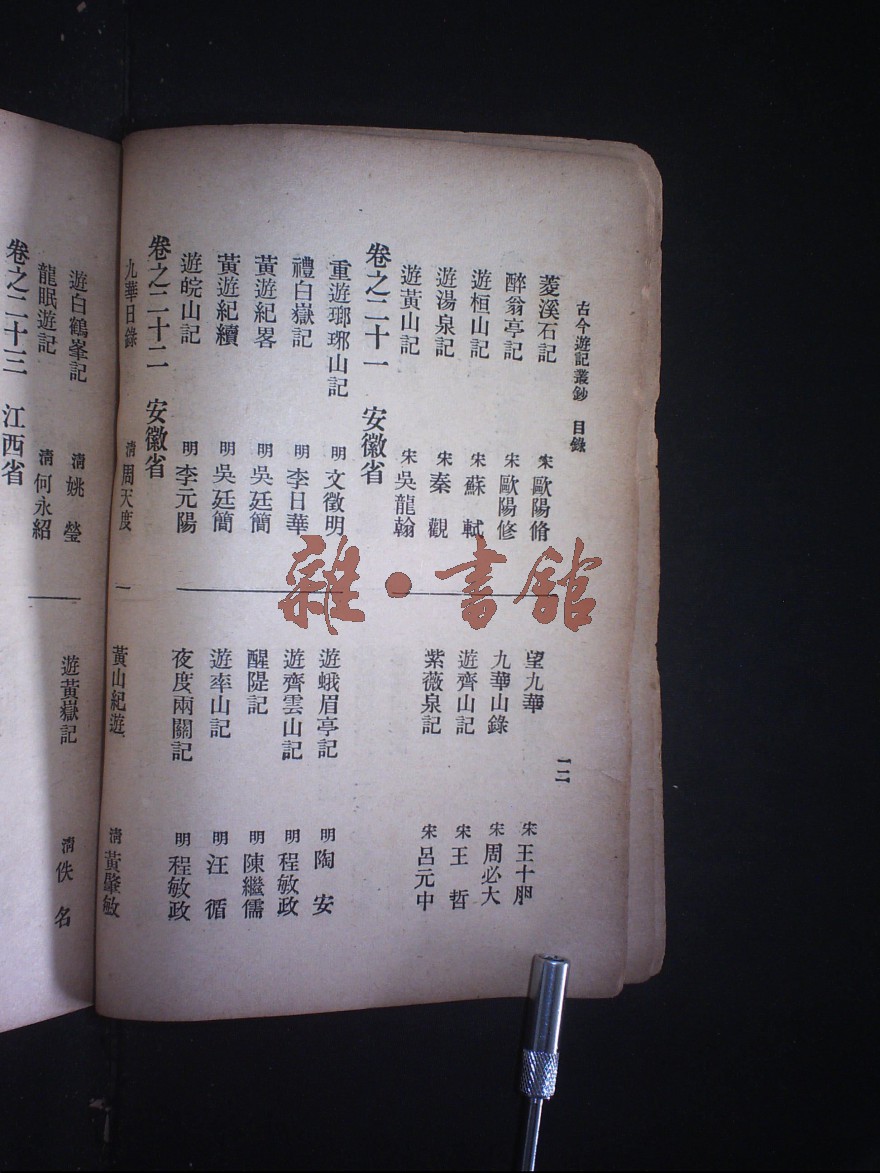 古今遊記叢鈔 目錄
菱溪石記 宋 歐陽脩
醉翁亭記 宋 歐陽修
遊桓山記 宋 蘇軾
遊湯泉記 宋 秦觀
遊黃山記 宋 吳龍翰
一二
望九華 宋 王十朋
九華山錄 宋 周必大
遊齊山記 宋 王哲
紫薇泉記 宋 呂元中
卷之二十一 安徽省
重遊瑯琊山記 明 文徵明
禮白嶽記 明 李日華
黃遊紀畧 明 吳廷簡
黃遊紀續 明 吳廷簡
遊皖山記 明 李元陽
遊蛾眉亭記 明 陶安
遊齊雲山記 明 程敏政
醒隄記 明 陳繼儒
遊率山記 明 汪循
夜度兩關記 明 程敏政
卷之二十二 安徽省
九華日錄 清 周天度
黃山紀遊 清 黃肇敏
遊白鶴峯記 清 姚瑩
龍眠遊記 清 何永紹
遊黃嶽記 清 佚名
卷之二十三 江西省
雜·書館